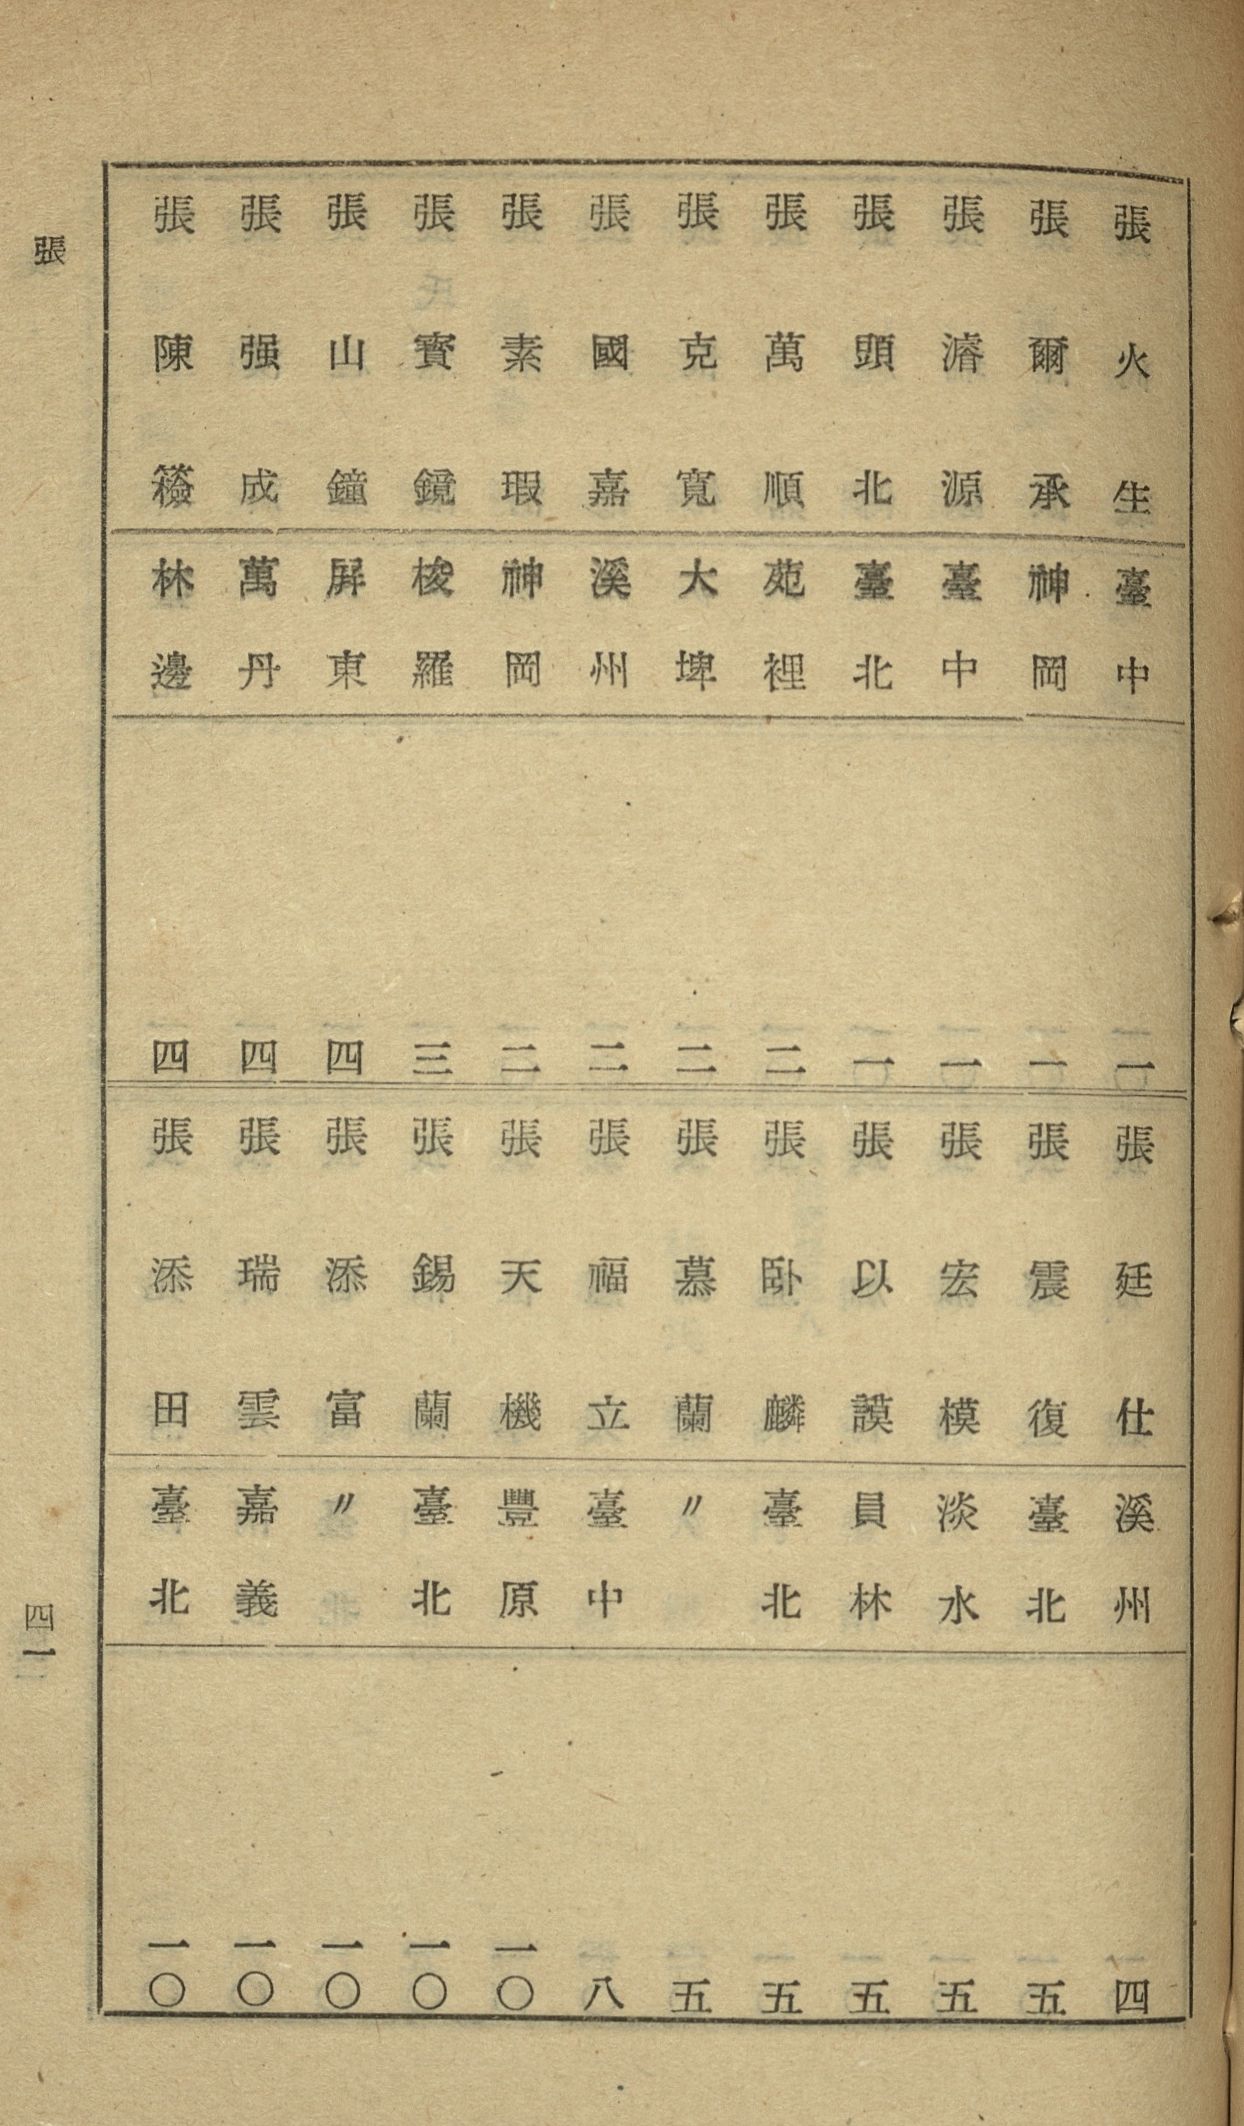 張火生 臺中 一
張爾承 神岡 一
張濬源 臺中 一
張頭北 臺北 一
張萬順 苑裡 二
張克寬 大埤 二
張國嘉 溪州 二
張素瑕 神岡 二
張寶鏡 梭羅 三
張山鐘 屏東 四
張强成 萬丹 四
張陳 林邊 四
張廷仕 溪州 四
張震復 臺北 五
張宏模 淡水 五
張以謨 員林 五
張卧麟 臺北 五
張慕蘭 〃 五
張福立 臺中 八
張天機 豐原 一〇
張錫蘭 臺北 一〇
張添富 〃 一〇
張瑞雲 嘉義 一〇
張添田 臺北 一〇
張
四一